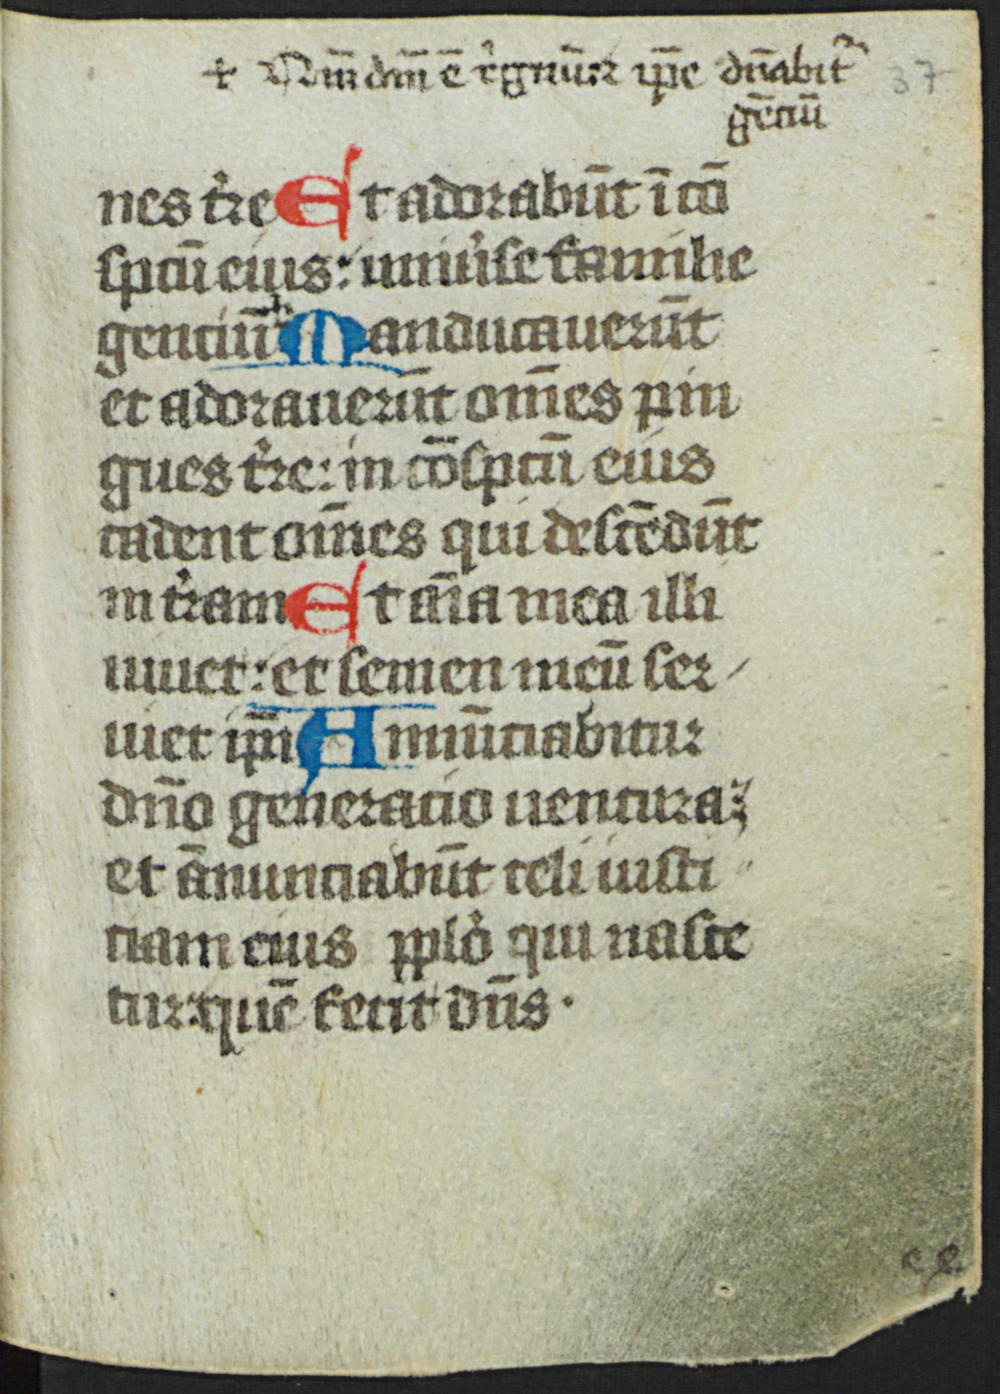 + Qm̄ dm̄ ē regnūz ip̄e dn̄abit᷑ 37
gēciū
nes tr̉re Et adorabūt ī cō
spcū eius: uniủse familie
genciū Manducauerūt
et adorauerūt om̄es pin
gues tr̉re: in cōspcū eius
cadent om̄es qui descēdūt
in tr̉ram Et aīa mea illi
uiuet: et semen meū ser
uiet ip̄i Annūciabitur
dn̄o generacio uentura:
et ānunciabūt celi iusti
ciam eius pplỏ qui nasce
tur: quē fecit dn̄s.